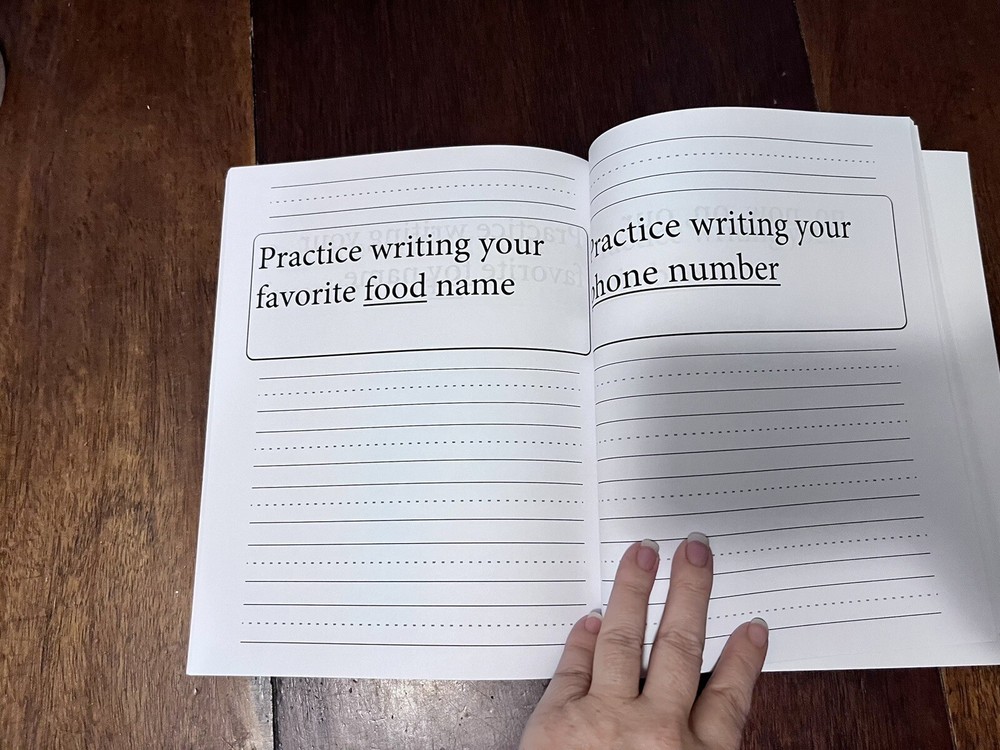 Practice writing your
favorite food name
Practice writing your
phone number